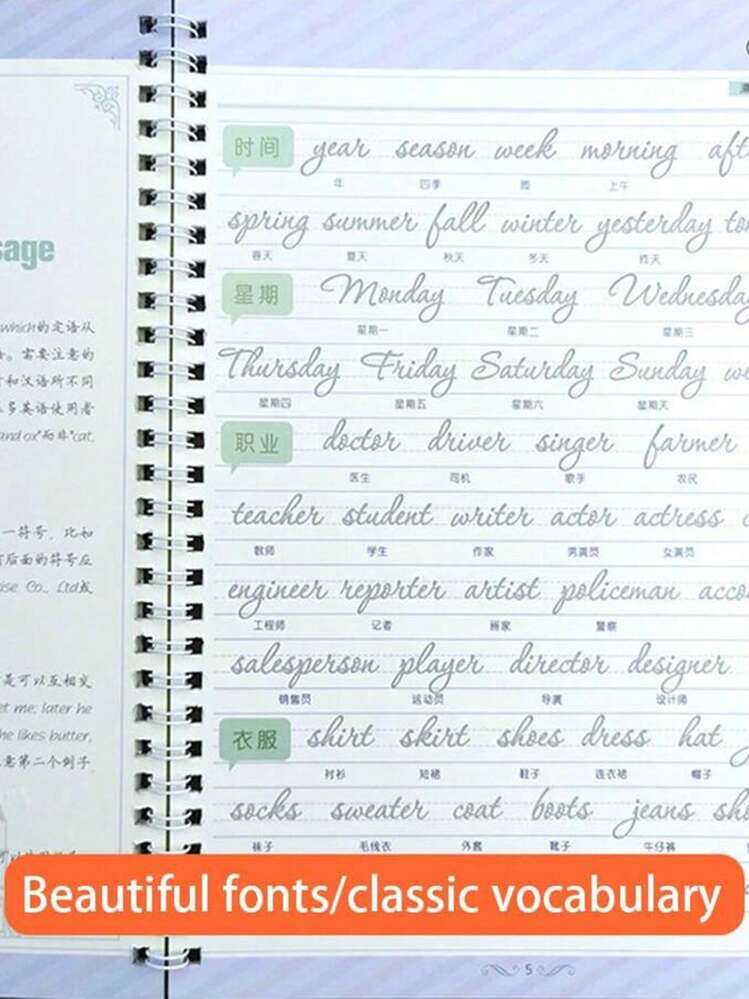 sage
which的定语从
。需要注意的
和汉语所不同
多英语使用者
and ox"而非"cat,
一符号，比如
后面的符号应
ise Co., Ltd或
是可以互相交
et me; later he
he likes butter,
意第二个例子
时间 year season week morning
年 四季 周 上午
spring summer fall winter yesterday
春天 夏天 秋天 冬天 昨天
星期 Monday Tuesday Wednesday
星期一 星期二 星期三
Thursday Friday Saturday Sunday we
星期四 星期五 星期六 星期天
职业 doctor driver singer farmer
医生 司机 歌手 农民
teacher student writer actor actress
教师 学生 作家 男演员 女演员
engineer reporter artist policeman acco
工程师 记者 画家 警察
salesperson player director designer
销售员 运动员 导演 设计师
衣服 shirt skirt shoes dress hat
衬衫 短裙 鞋子 连衣裙 帽子
socks sweater coat boots jeans sho
袜子 毛线衣 外套 靴子 牛仔裤
Beautiful fonts/classic vocabulary
5